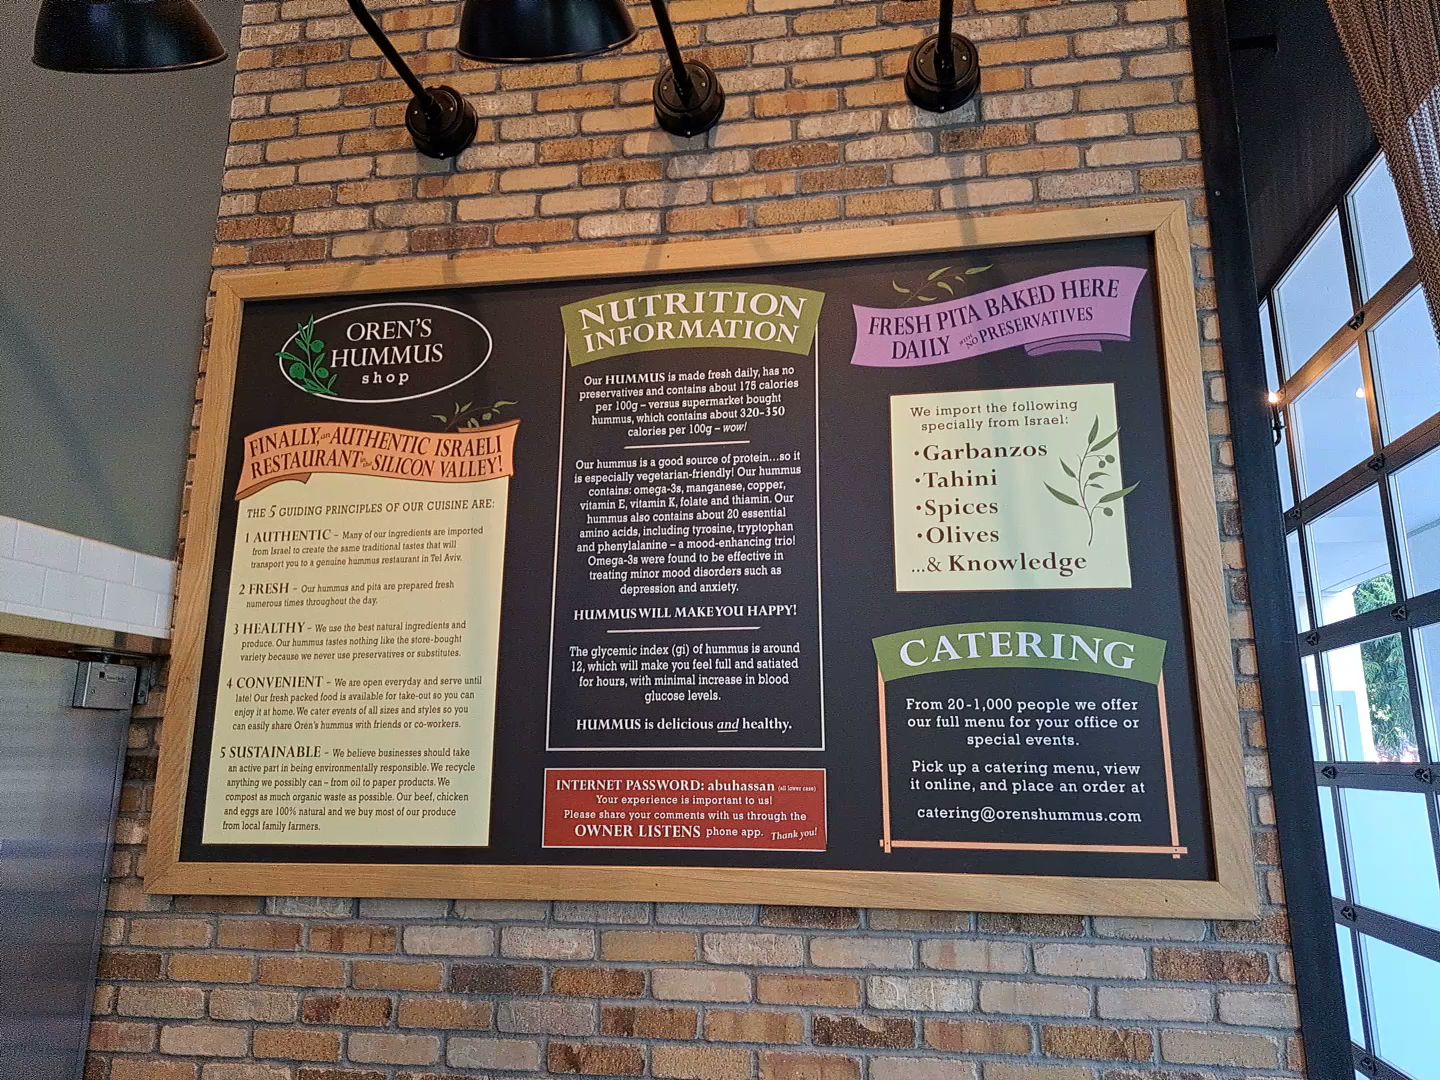 OREN'S
HUMMUS
shop
FINALLY, an AUTHENTIC ISRAELI
RESTAURANT in the SILICON VALLEY!
THE 5 GUIDING PRINCIPLES OF OUR CUISINE ARE:
1 AUTHENTIC – Many of our ingredients are imported
from Israel to create the same traditional tastes that will
transport you to a genuine hummus restaurant in Tel Aviv.
2 FRESH – Our hummus and pita are prepared fresh
numerous times throughout the day.
3 HEALTHY – We use the best natural ingredients and
produce. Our hummus tastes nothing like the store-bought
variety because we never use preservatives or substitutes.
4 CONVENIENT – We are open everyday and serve until
late! Our fresh packed food is available for take-out so you can
enjoy it at home. We cater events of all sizes and styles so you
can easily share Oren's hummus with friends or co-workers.
5 SUSTAINABLE – We believe businesses should take
an active part in being environmentally responsible. We recycle
anything we possibly can – from oil to paper products. We
compost as much organic waste as possible. Our beef, chicken
and eggs are 100% natural and we buy most of our produce
from local family farmers.
NUTRITION
INFORMATION
Our HUMMUS is made fresh daily, has no
preservatives and contains about 175 calories
per 100g – versus supermarket bought
hummus, which contains about 320-350
calories per 100g – wow!
Our hummus is a good source of protein...so it
is especially vegetarian-friendly! Our hummus
contains: omega-3s, manganese, copper,
vitamin E, vitamin K, folate and thiamin. Our
hummus also contains about 20 essential
amino acids, including tyrosine, tryptophan
and phenylalanine – a mood-enhancing trio!
Omega-3s were found to be effective in
treating minor mood disorders such as
depression and anxiety.
HUMMUS WILL MAKE YOU HAPPY!
The glycemic index (gi) of hummus is around
12, which will make you feel full and satiated
for hours, with minimal increase in blood
glucose levels.
HUMMUS is delicious and healthy.
INTERNET PASSWORD: abuhassan (all lower case)
Your experience is important to us!
Please share your comments with us through the
OWNER LISTENS phone app. Thank you!
FRESH PITA BAKED HERE
DAILY with NO PRESERVATIVES
We import the following
specially from Israel:
• Garbanzos
• Tahini
• Spices
• Olives
...& Knowledge
CATERING
From 20-1,000 people we offer
our full menu for your office or
special events.
Pick up a catering menu, view
it online, and place an order at
catering@orenshummus.com